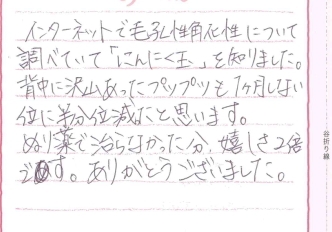 インターネットで毛孔性角化性について
調べていて「にんにく玉」を知りました。
背中に沢山あったプップツも1ヶ月しない
位に半分位減たと思います。
ぬり薬で治らなかった分、嬉しさ2倍
です。ありがとうございました。
谷折り線